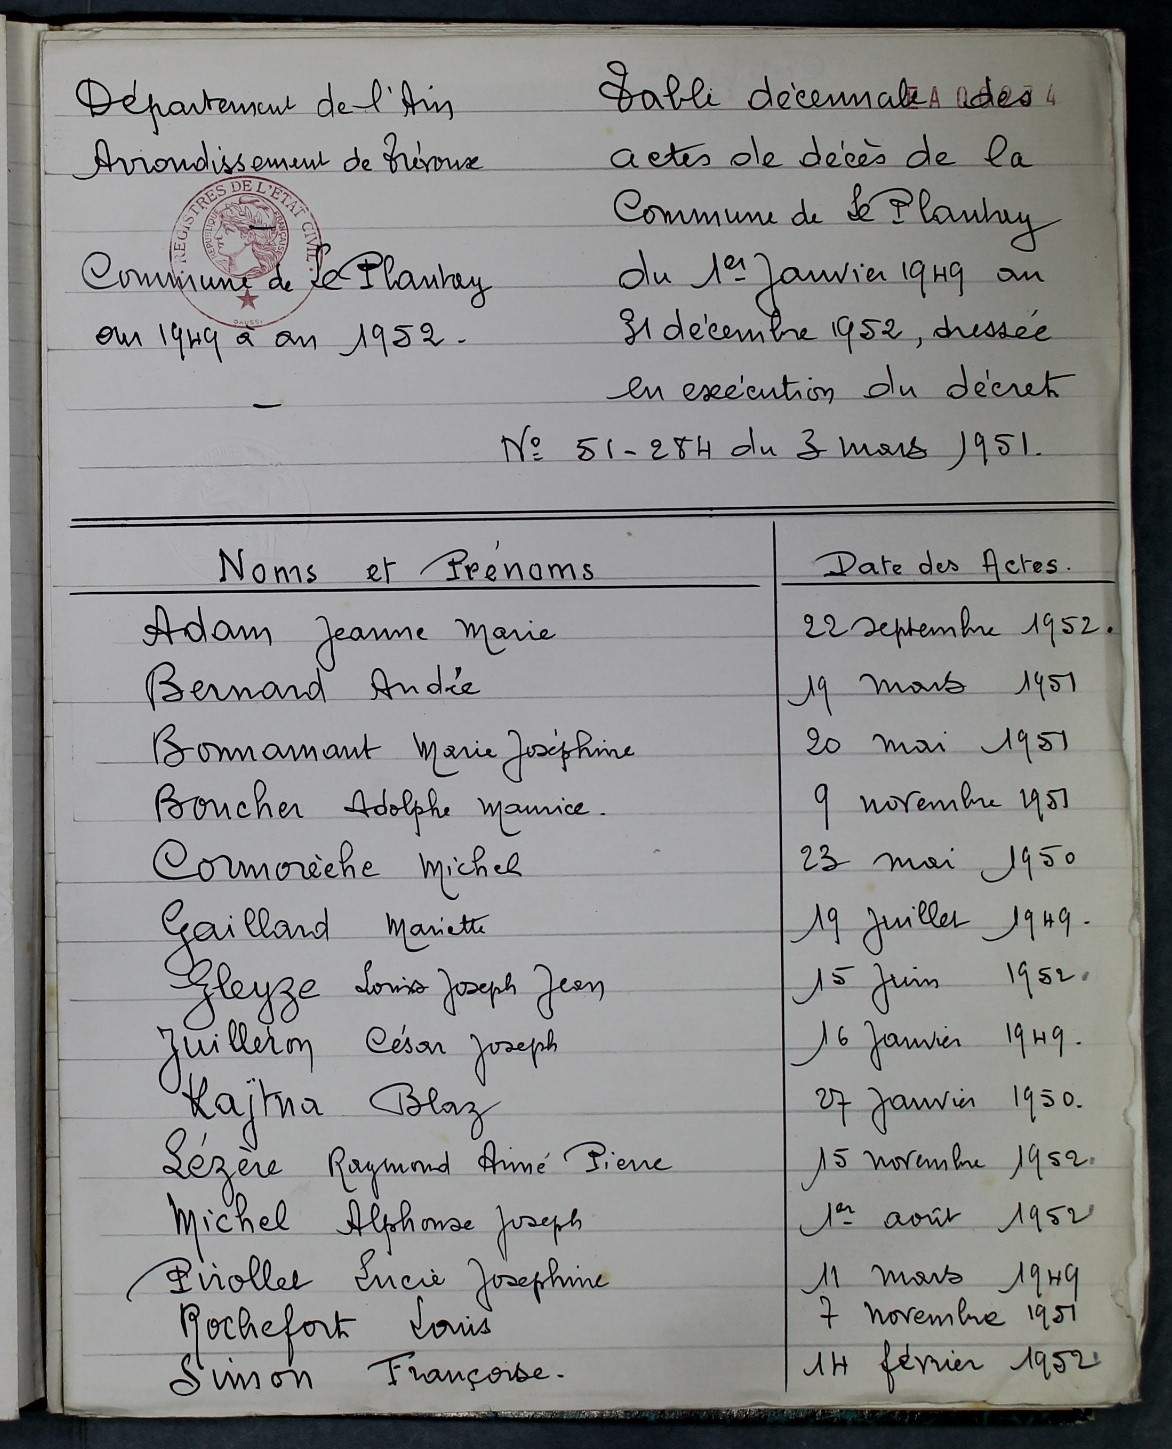 Département de l'Ain
Arrondissement de Trévoux
REGISTRES DE L'ETAT CIVIL
Commune de Le Plantay
an 1949 à an 1952.
Table décennale des
actes de décès de la
Commune de Le Plantay
du 1er Janvier 1949 au
31 décembre 1952, dressée
en exécution du décret
No 51-284 du 3 mars 1951.
Noms et Prénoms Date des Actes.
Adam Jeanne Marie 22 septembre 1952.
Bernard Andrée 19 mars 1951
Bonnamant Marie Joséphine 20 mai 1951
Boucher Adolphe Maurice. 9 novembre 1951
Cormorèche Michel 23 mai 1950
Gaillard Mariette 19 Juillet 1949.
Gleyze Louis Joseph Jean 15 Juin 1952.
Juilleron César Joseph 16 Janvier 1949.
Kajtna Blaz 27 Janvier 1950.
Lézère Raymond Aimé Pierre 15 novembre 1952.
Michel Alphonse Joseph 1er août 1952
Pirollet Lucie Josephine 11 mars 1949
Rochefort Louis 7 novembre 1951
Simon Françoise. 14 février 1952